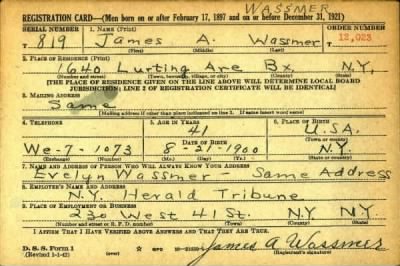 WASSMER
REGISTRATION CARD—(Men born on or after February 17, 1897 and on or before December 31, 1921)
SERIAL NUMBER 1. NAME (Print) ORDER NUMBER
819 James A. Wassmer 12,023
(First) (Middle) (Last)
2. PLACE OF RESIDENCE (Print)
1640 Lurting Ave Bx. N.Y.
(Number and street) (Town, township, village, or city) (County) (State)
[THE PLACE OF RESIDENCE GIVEN ON THE LINE ABOVE WILL DETERMINE LOCAL BOARD
JURISDICTION; LINE 2 OF REGISTRATION CERTIFICATE WILL BE IDENTICAL]
3. MAILING ADDRESS
Same
[Mailing address if other than place indicated on line 2. If same insert word same]
4. TELEPHONE 5. AGE IN YEARS 6. PLACE OF BIRTH
41 U.S.A.
We-7-1073 DATE OF BIRTH (Town or county)
8-21-1900 N.Y.
(Exchange) (Number) (Mo.) (Day) (Yr.) (State or country)
7. NAME AND ADDRESS OF PERSON WHO WILL ALWAYS KNOW YOUR ADDRESS
Evelyn Wassmer - Same Address
8. EMPLOYER'S NAME AND ADDRESS
N.Y. Herald Tribune
9. PLACE OF EMPLOYMENT OR BUSINESS
230 West 41 St. N.Y. N.Y.
(Number and street or R. F. D. number) (Town) (County) (State)
I AFFIRM THAT I HAVE VERIFIED ABOVE ANSWERS AND THAT THEY ARE TRUE.
D. S. S. Form 1
(Revised 1-1-42) GPO James A Wassmer
(Registrant's signature)